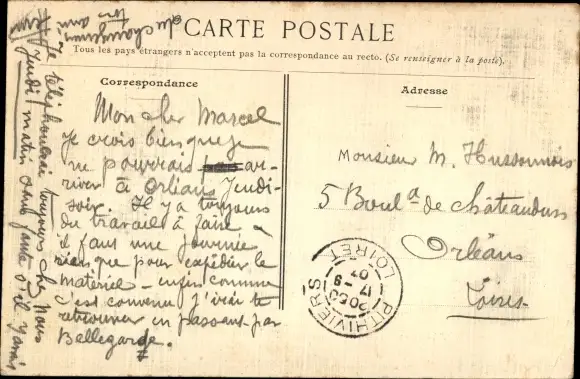 CARTE POSTALE
Tous les pays étrangers n'acceptent pas la correspondance au recto. (Se renseigner à la poste).
Correspondance
Mon cher Marcel
je crois bien que je
ne pourrais ar-
river à Orléans Jeudi-
soir. Il y a toujours
du travail à faire
il faut une journée
rien que pour expédier le
matériel - enfin comme
c'est convenu j'irai te
retrouver en passant par
Bellegarde.
Je téléphonerai toujours chez vous
jeudi matin sans faute s'il y avait
du changement
Adresse
Monsieur M. Hussonnois
5 Boul. de Châteaudun
Orléans
Loiret
PITHIVIERS
LOIRET
17 - 9
07